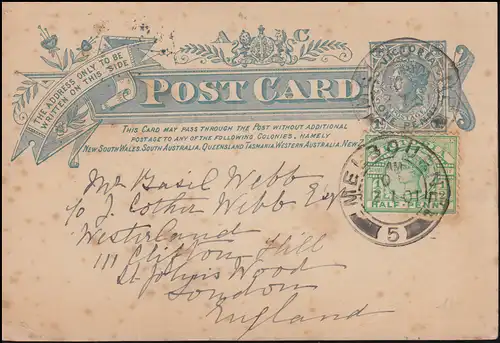 A C
THE ADDRESS ONLY TO BE
WRITTEN ON THIS SIDE
POST CARD
VICTORIA
THIS CARD MAY PASS THROUGH THE POST WITHOUT ADDITIONAL
POSTAGE TO ANY OF THE FOLLOWING COLONIES, NAMELY
NEW SOUTH WALES, SOUTH AUSTRALIA, QUEENSLAND TASMANIA, WESTERN AUSTRALIA, NEW
MELBOURNE
AM
5
HALF-PENNY
Mr Basil Webb
c/o J. Cotha Webb Esq
Westerland
111 Clifton Hill
St John's Wood
London
England